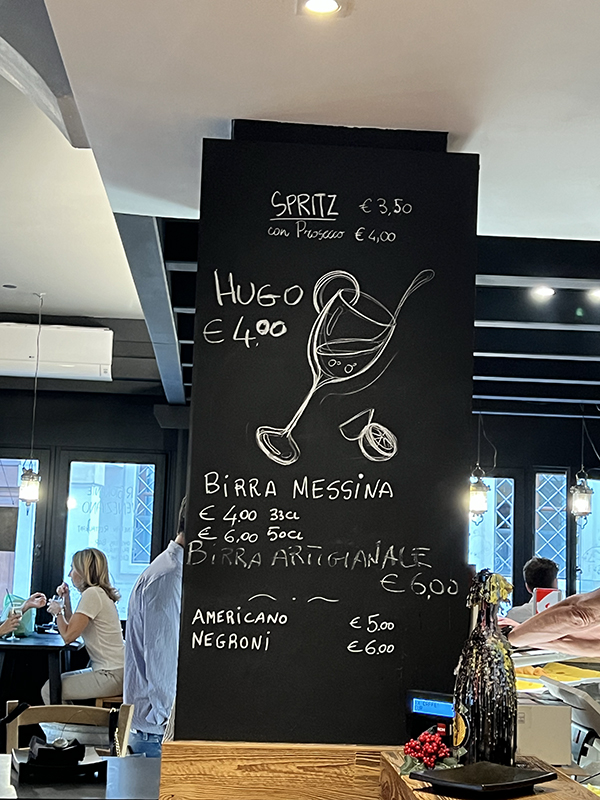 SPRITZ € 3,50
con Prosecco € 4,00
HUGO
€ 4,00
BIRRA MESSINA
€ 4,00 33cl
€ 6,00 50cl
BIRRA ARTIGIANALE
€ 6,00
AMERICANO € 5,00
NEGRONI € 6,00